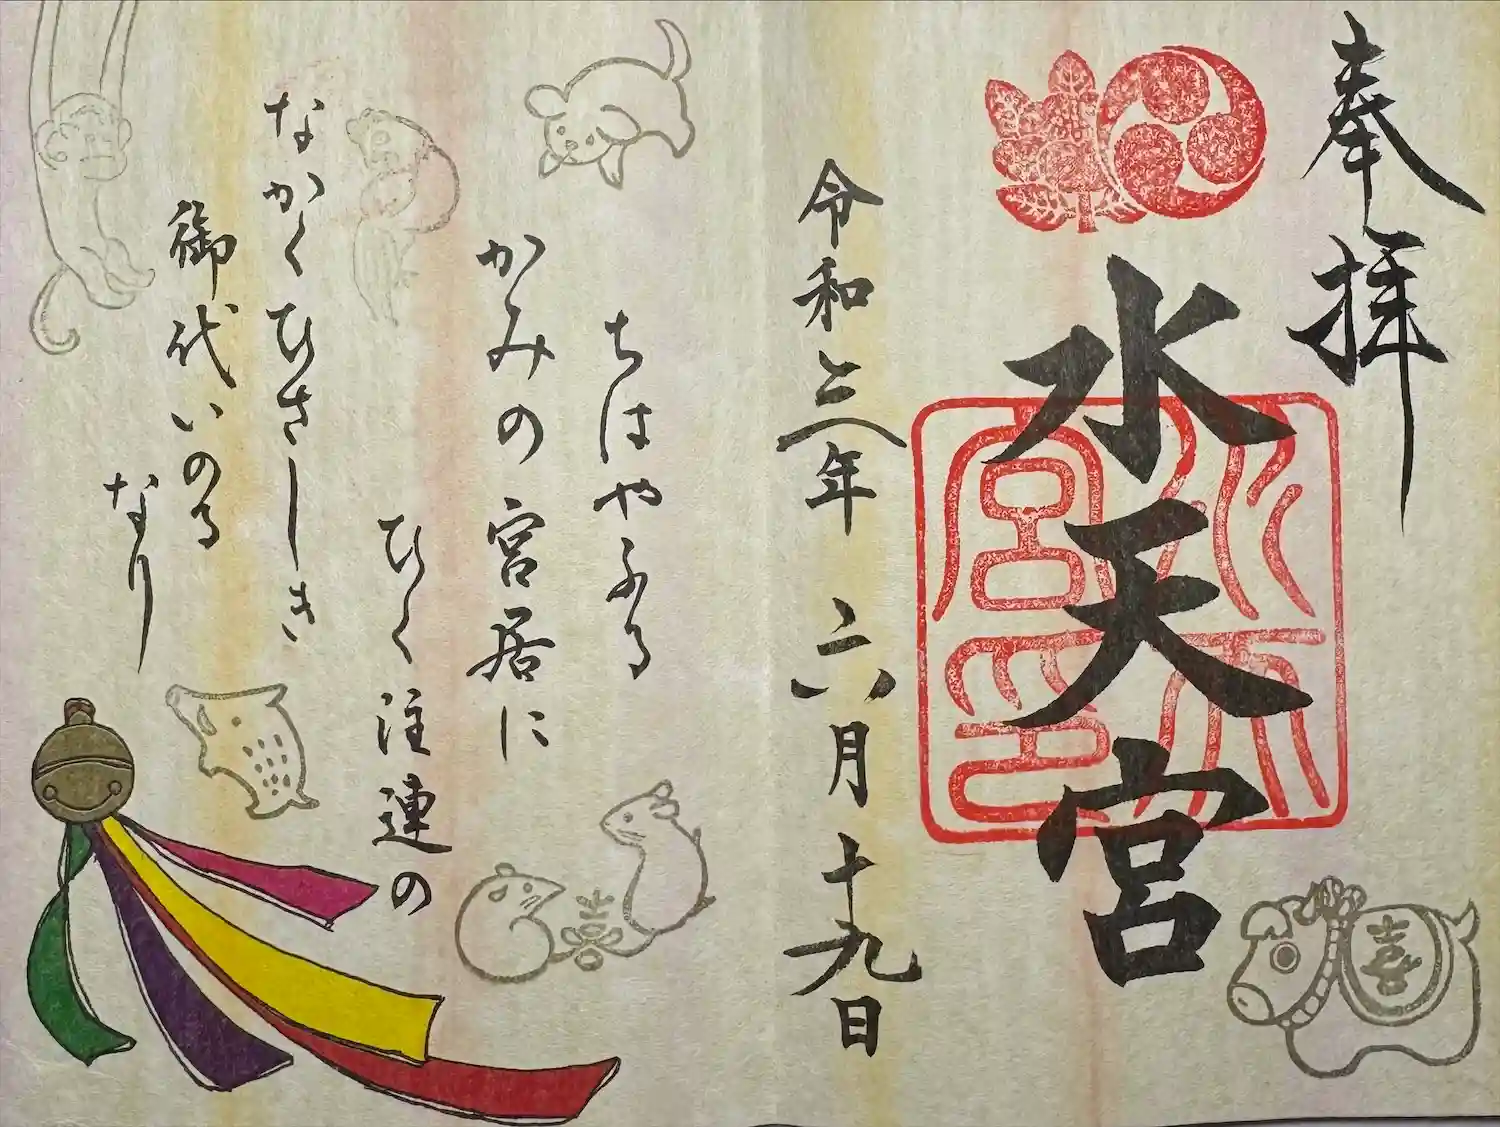 奉拝
水天宮
水天宮印
令和三年六月十九日
ちはやふる
かみの宮居に
ひく注連の
なかくひさしき
御代いのる
なり
喜
喜